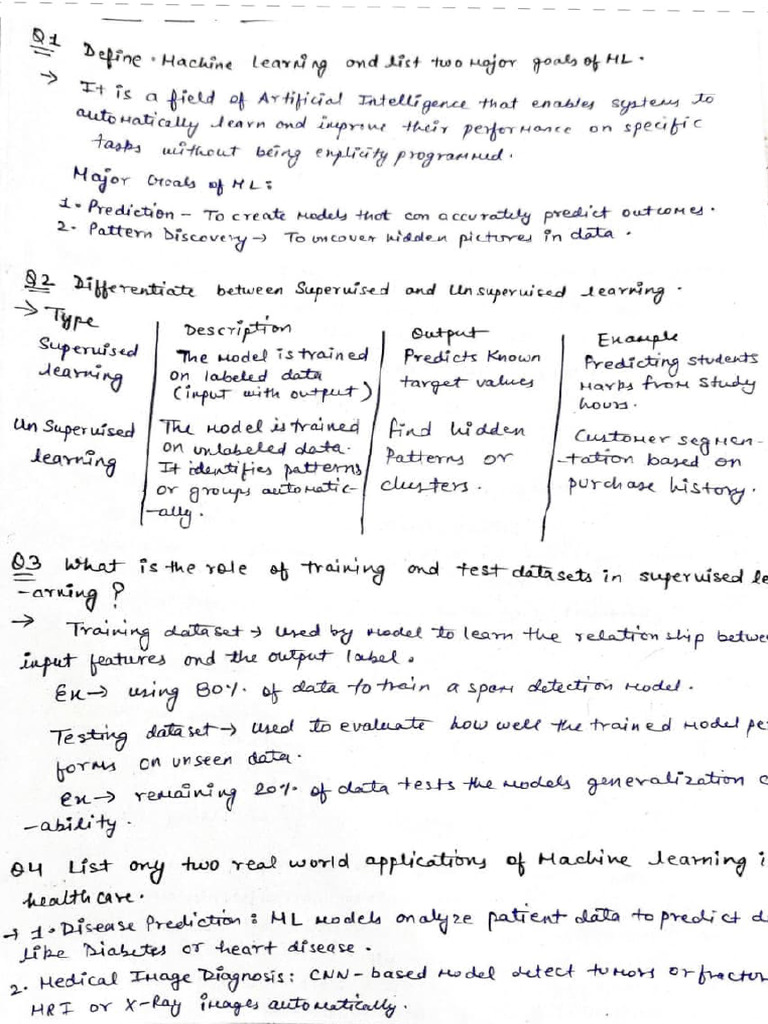 Q1 Define Machine Learning and list two major goals of ML.
→ It is a field of Artificial Intelligence that enables systems to
automatically learn and improve their performance on specific
tasks without being explicity programmed.
Major Goals of ML:
1. Prediction - To create models that can accurately predict outcomes.
2. Pattern Discovery → To uncover hidden pictures in data.
Q2 Differentiate between Supervised and Unsupervised learning.
→ Type | Description | Output | Example
Supervised | The model is trained | Predicts Known | Predicting students
learning | on labeled data | target values | marks from study
(input with output) | hours.
Un Supervised | The model is trained | find hidden | Customer segmen-
learning | on unlabeled data. | Patterns or | -tation based on
It identifies patterns | clusters. | purchase history.
or groups automatic-
-ally.
Q3 What is the role of training and test datasets in supervised le
-arning?
→ Training dataset → used by model to learn the relationship betwe
input features and the output label.
Ex → using 80% of data to train a spam detection model.
Testing dataset → used to evaluate how well the trained model pe
forms on unseen data.
Ex → remaining 20% of data tests the models generalization
-ability.
Q4 List any two real world applications of Machine learning i
healthcare.
→ 1. Disease Prediction: ML models analyze patient data to predict d
like Diabetes or heart disease.
2. Medical Image Diagnosis: CNN-based model detect tumors or fractur
MRI or X-Ray images automatically.